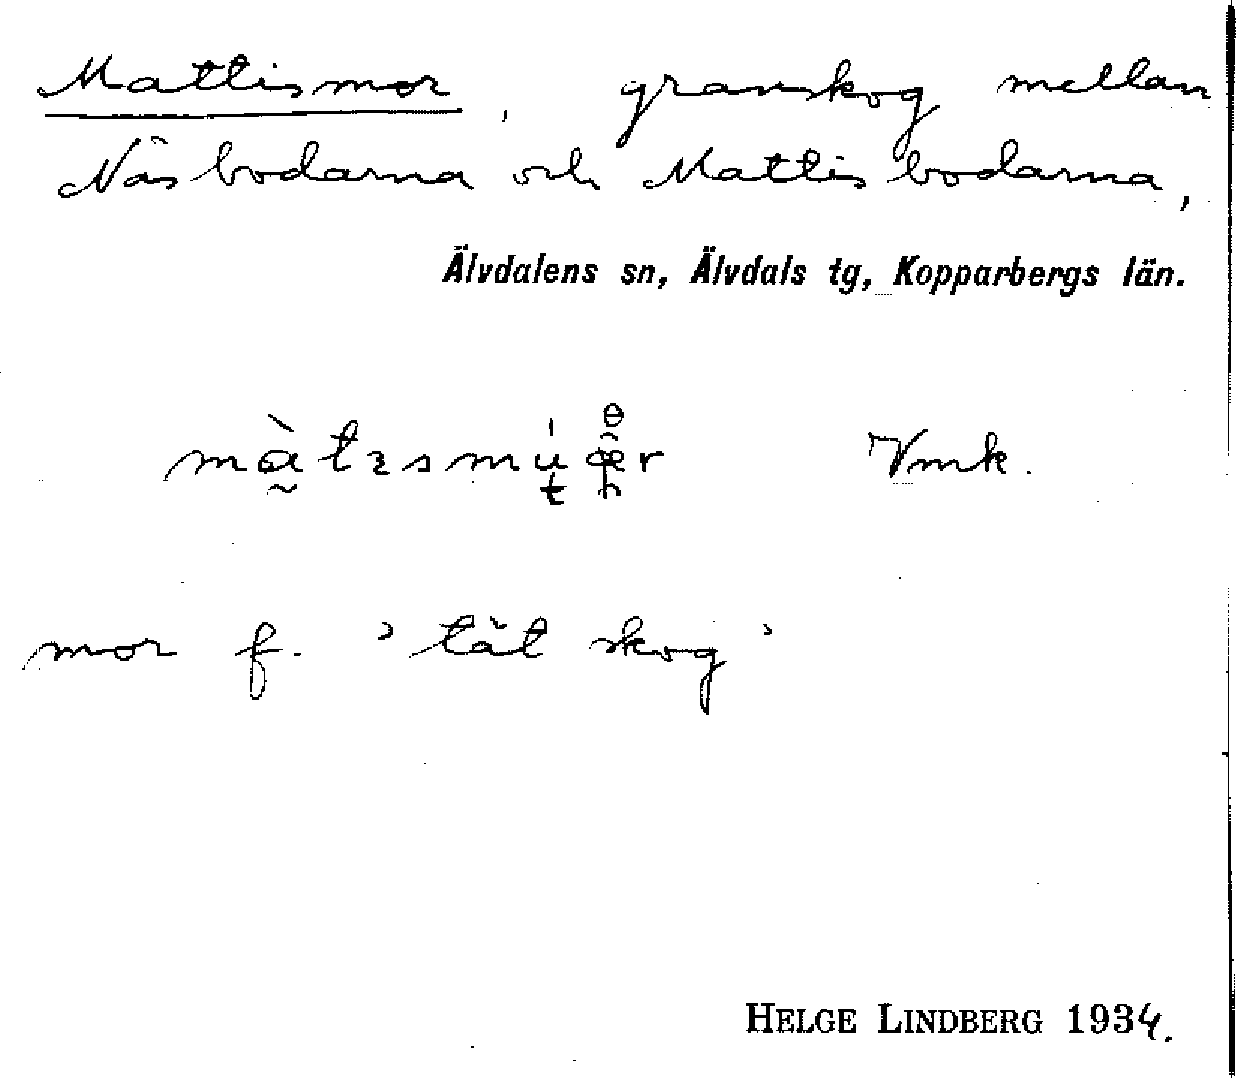 Mattismor, granskog mellan
Näsbodarna och Mattisbodarna,
Älvdalens sn, Älvdals tg, Kopparbergs län.
Vmk.
mor f. 'tät skog'
HELGE LINDBERG 1934.